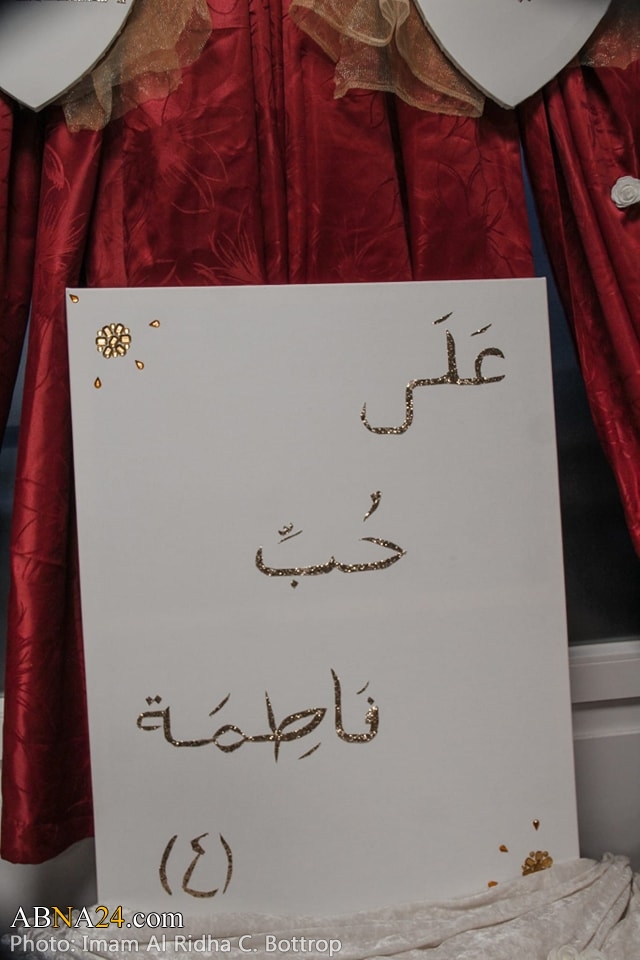 عَلَى
حُبِّ
فَاطِمَة
(ع)
ABNA24.com
Photo: Imam Al Ridha C. Bottrop